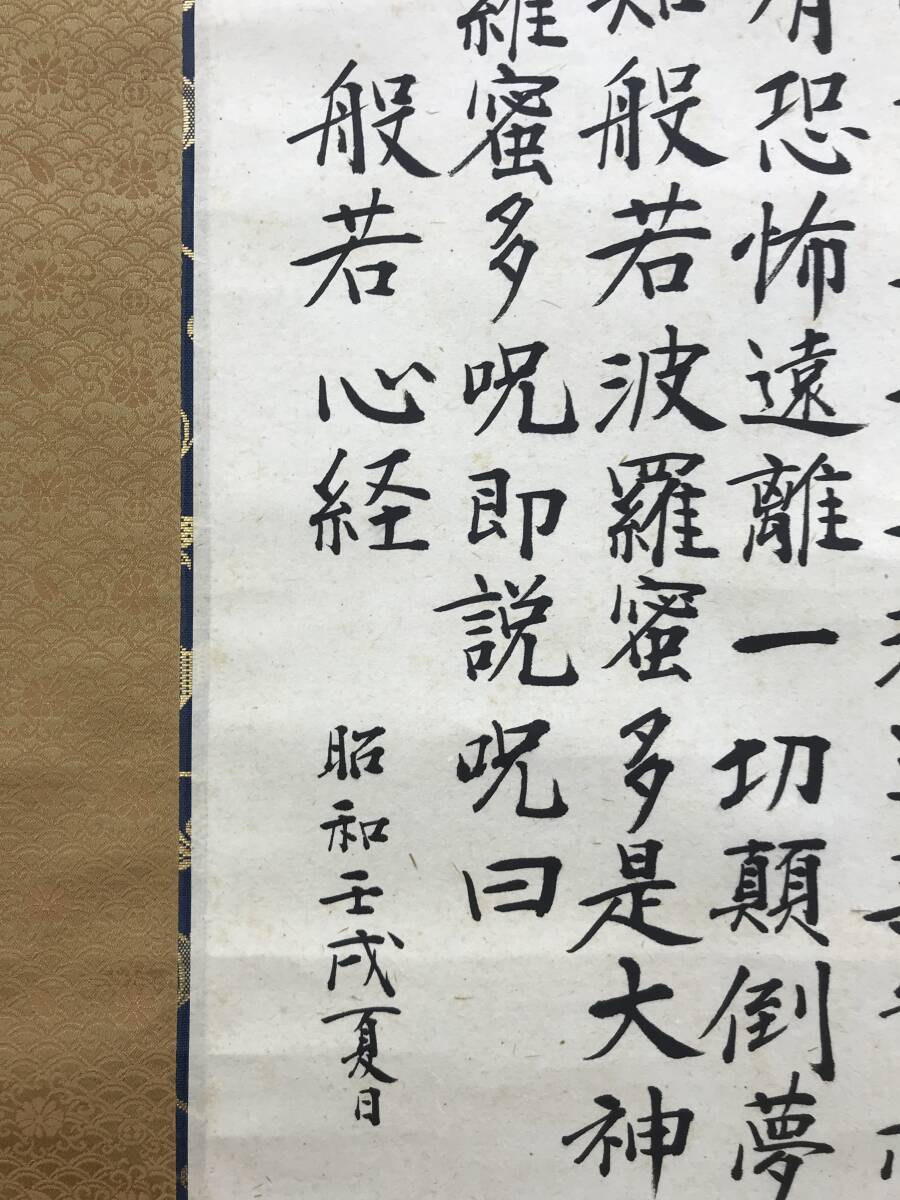 有恐怖遠離一切顛倒夢
知般若波羅蜜多是大神
羅蜜多呪即説呪曰
般若心経
昭和壬戌夏日